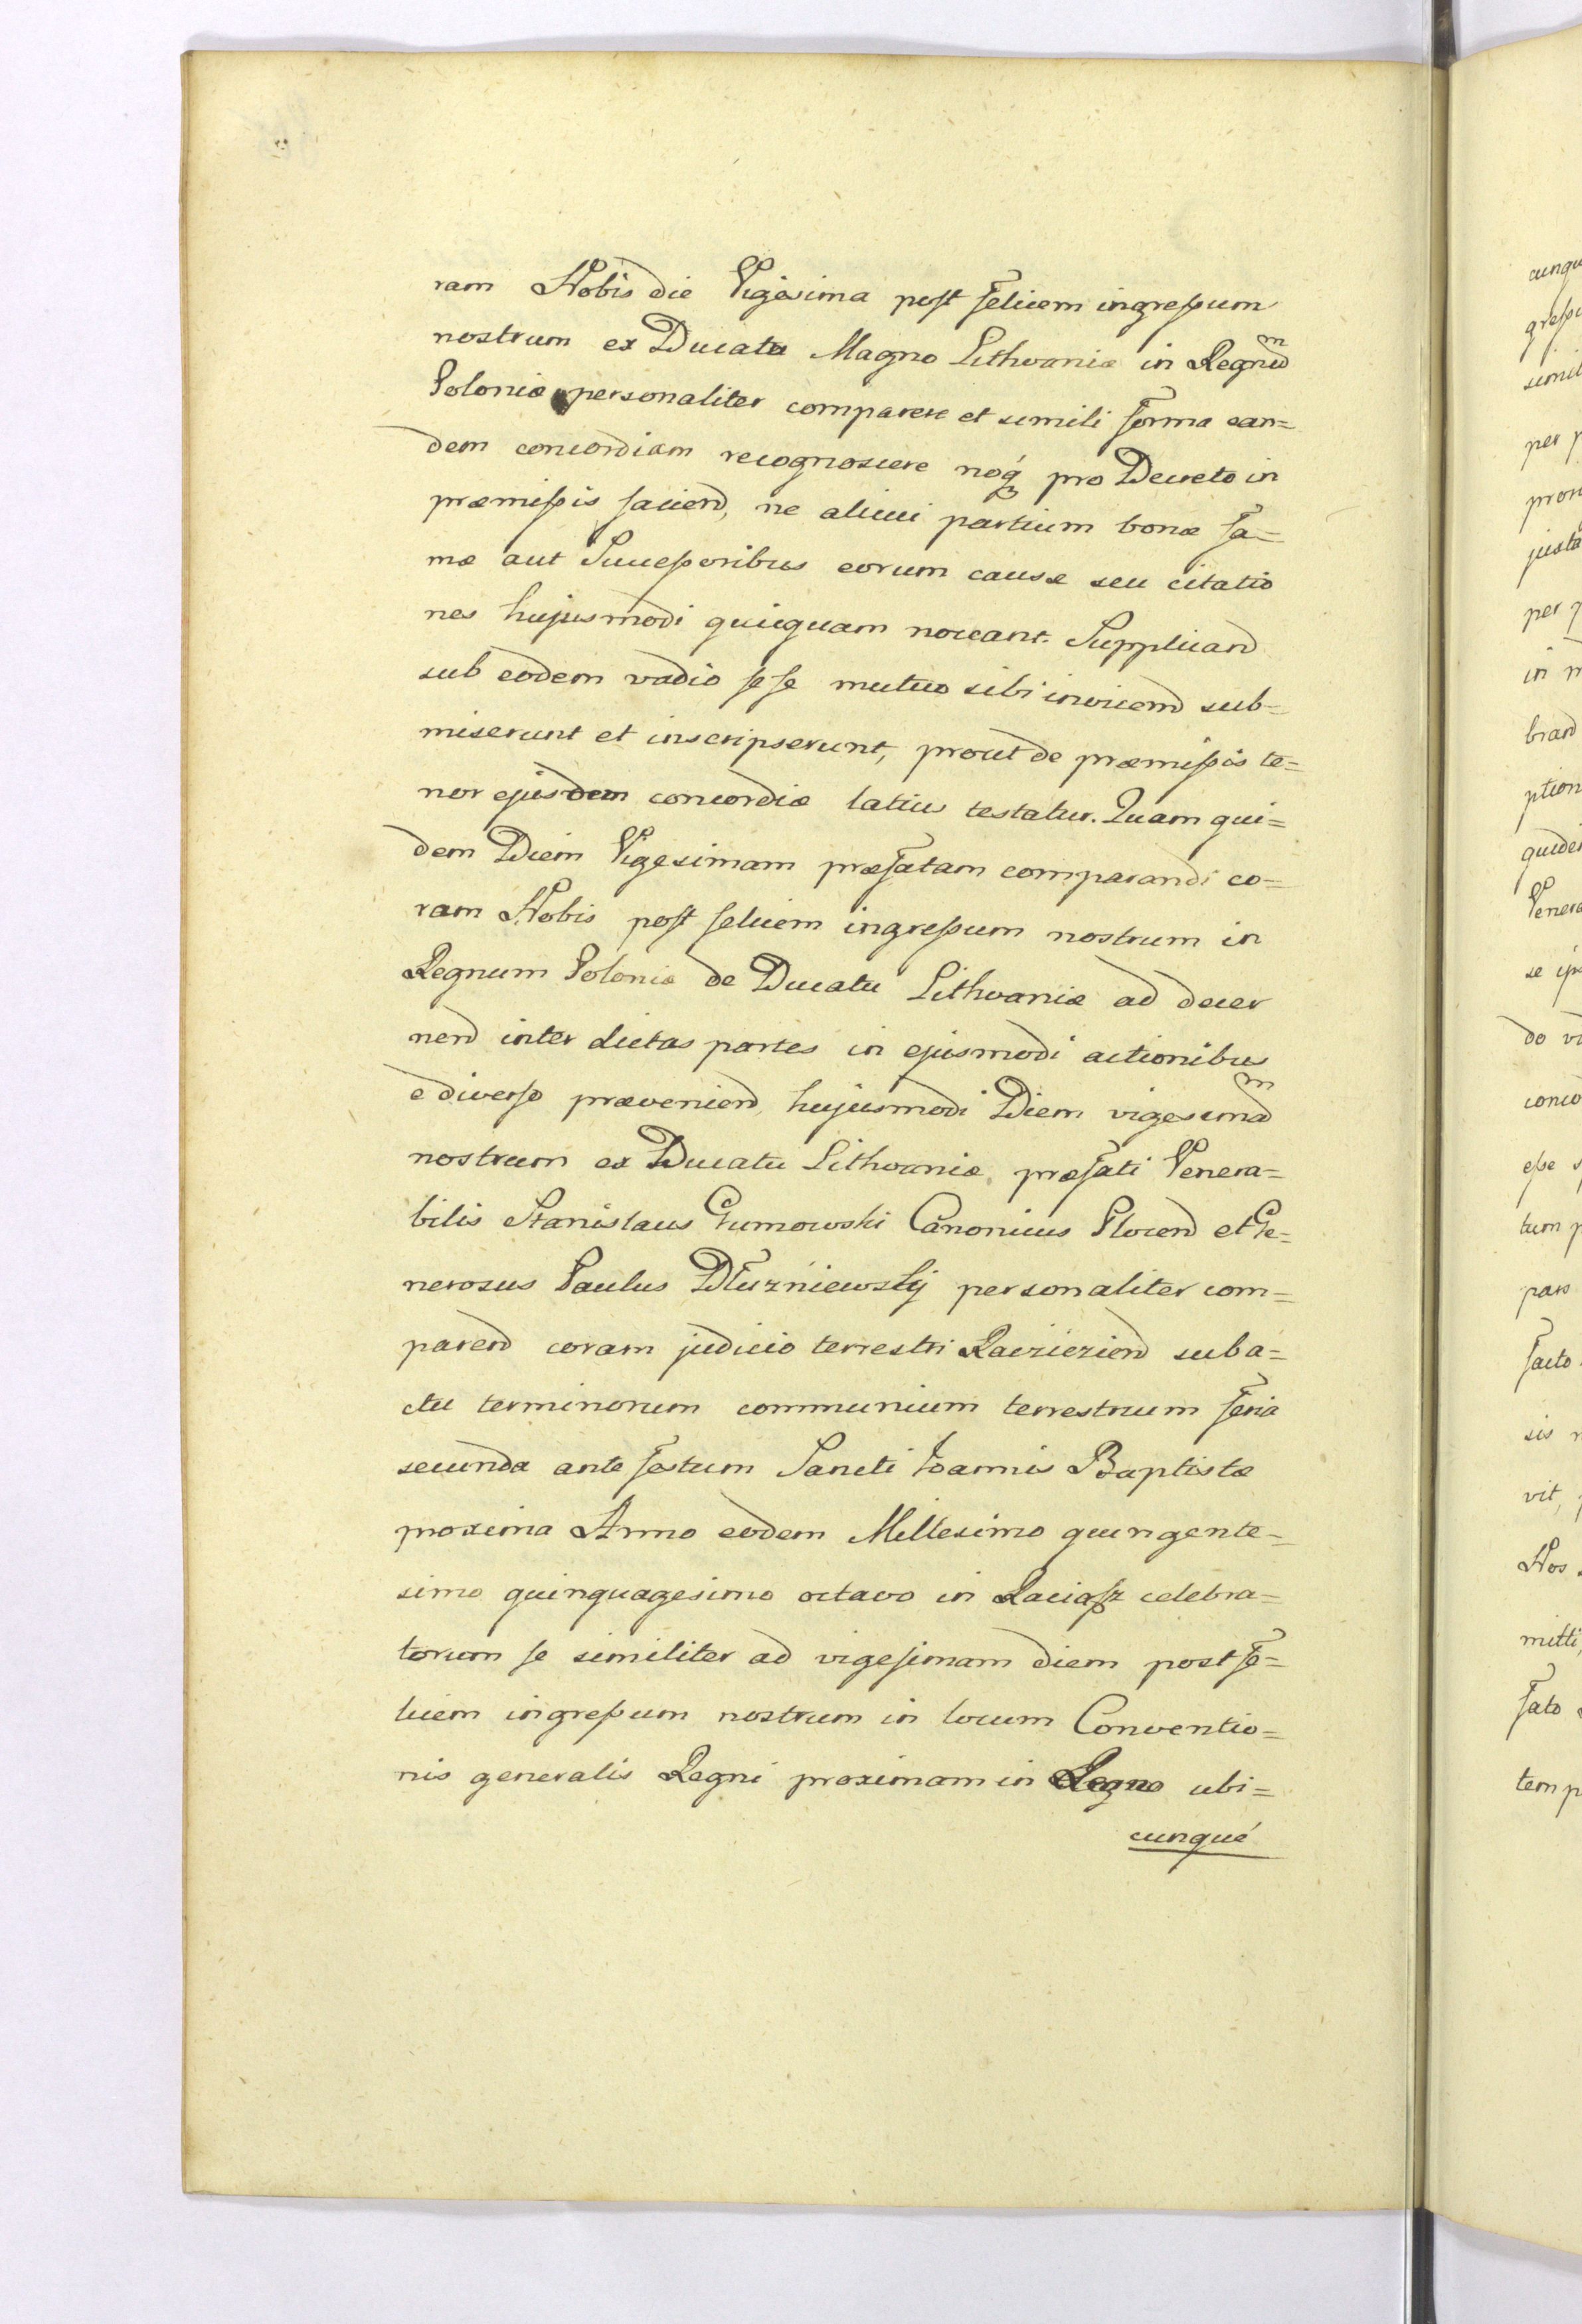 ram Nobis die Vigesima post felicem ingressum
nostrum ex Ducatu Magno Lithvaniæ in Regnu͞m
Poloniæ personaliter comparere et simili forma ean=
dem concordiam recognoscere noq́ꝫ pro Decreto in
præmissis faciend, ne alicui partium bonæ fa=
mæ aut Successoribus eorum causæ seu citatio
nes hujusmodi quicquam noceant. Supplicand
sub eodem vadio sese mutuo sibi invicem sub=
miserunt et inscripserunt, prout de præmissis te=
nor ejusdem concordiæ latius testatur. Quam qui=
dem Diem Vigesimam præfatam comparandi co=
ram Nobis post felicem ingressum nostrum in
Regnum Poloniæ de Ducatu Lithvaniæ ad decer
nend inter dictas partes in ejusmodi actionibus
e diverso præveniend, hujusmodi Diem vigesima͞m
nostrum ex Ducatu Lithvaniæ, præfati Venera=
bilis Stanislaus Gumowski Canonicus Plocend et Ge=
nerosus Paulus Dłuzniewskij personaliter com=
parend coram judicio terrestri Raciieziend sub a=
ctu terminorum communium terrestrium feria
secunda ante festum Sancti Joannis Baptistæ
proxima Anno eodem Millesimo quingente=
simo quinquagesimo octavo in Raciasz celebra=
torum se similiter ad vigesimam diem post fe=
licem ingressum nostrum in locum Conventio=
nis generalis Regni proximam in Regno ubi=
cunqué
cunqu
gressu
simil
per p
pron
justa
per q
in m
brand
ption
quide
Venera
se ips
do va
conco
esse s
tum p
pars
facto
sis n
vit,
Nos
mitti
fato
temp